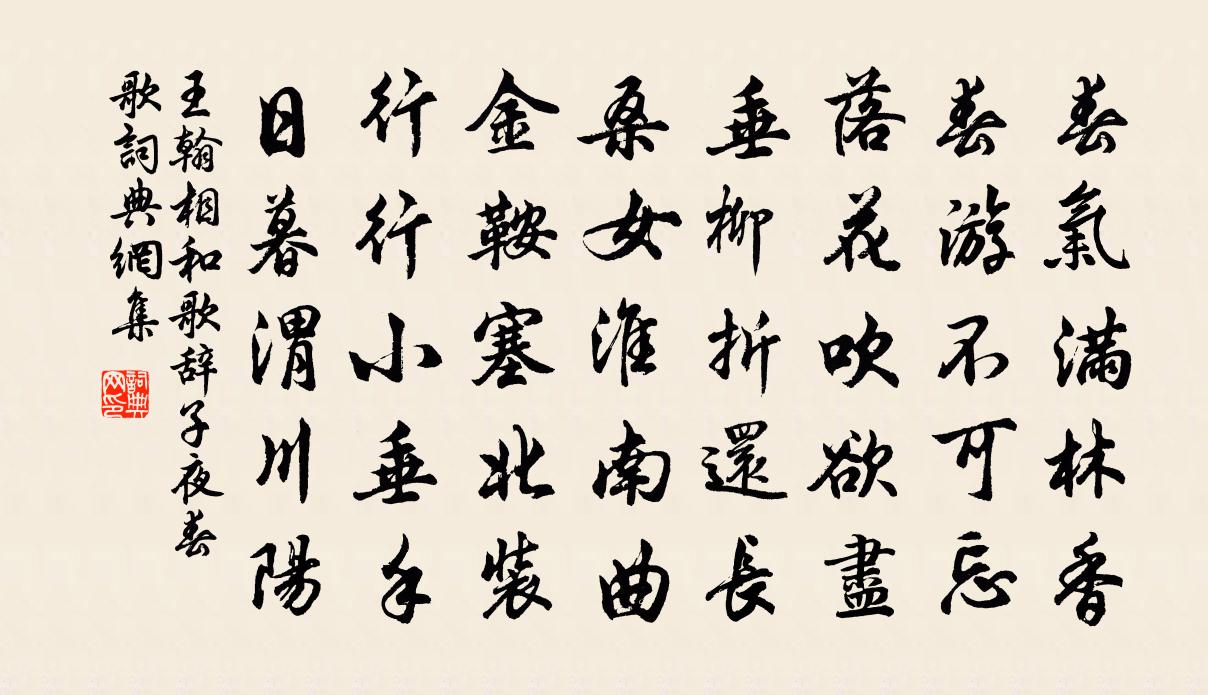 春氣滿林香
春游不可忘
落花吹欲盡
垂柳折還長
桑女淮南曲
金鞍塞北裝
行行小垂手
日暮渭川陽
王翰相和歌辞子夜春
歌詞典網集
詞典
网印